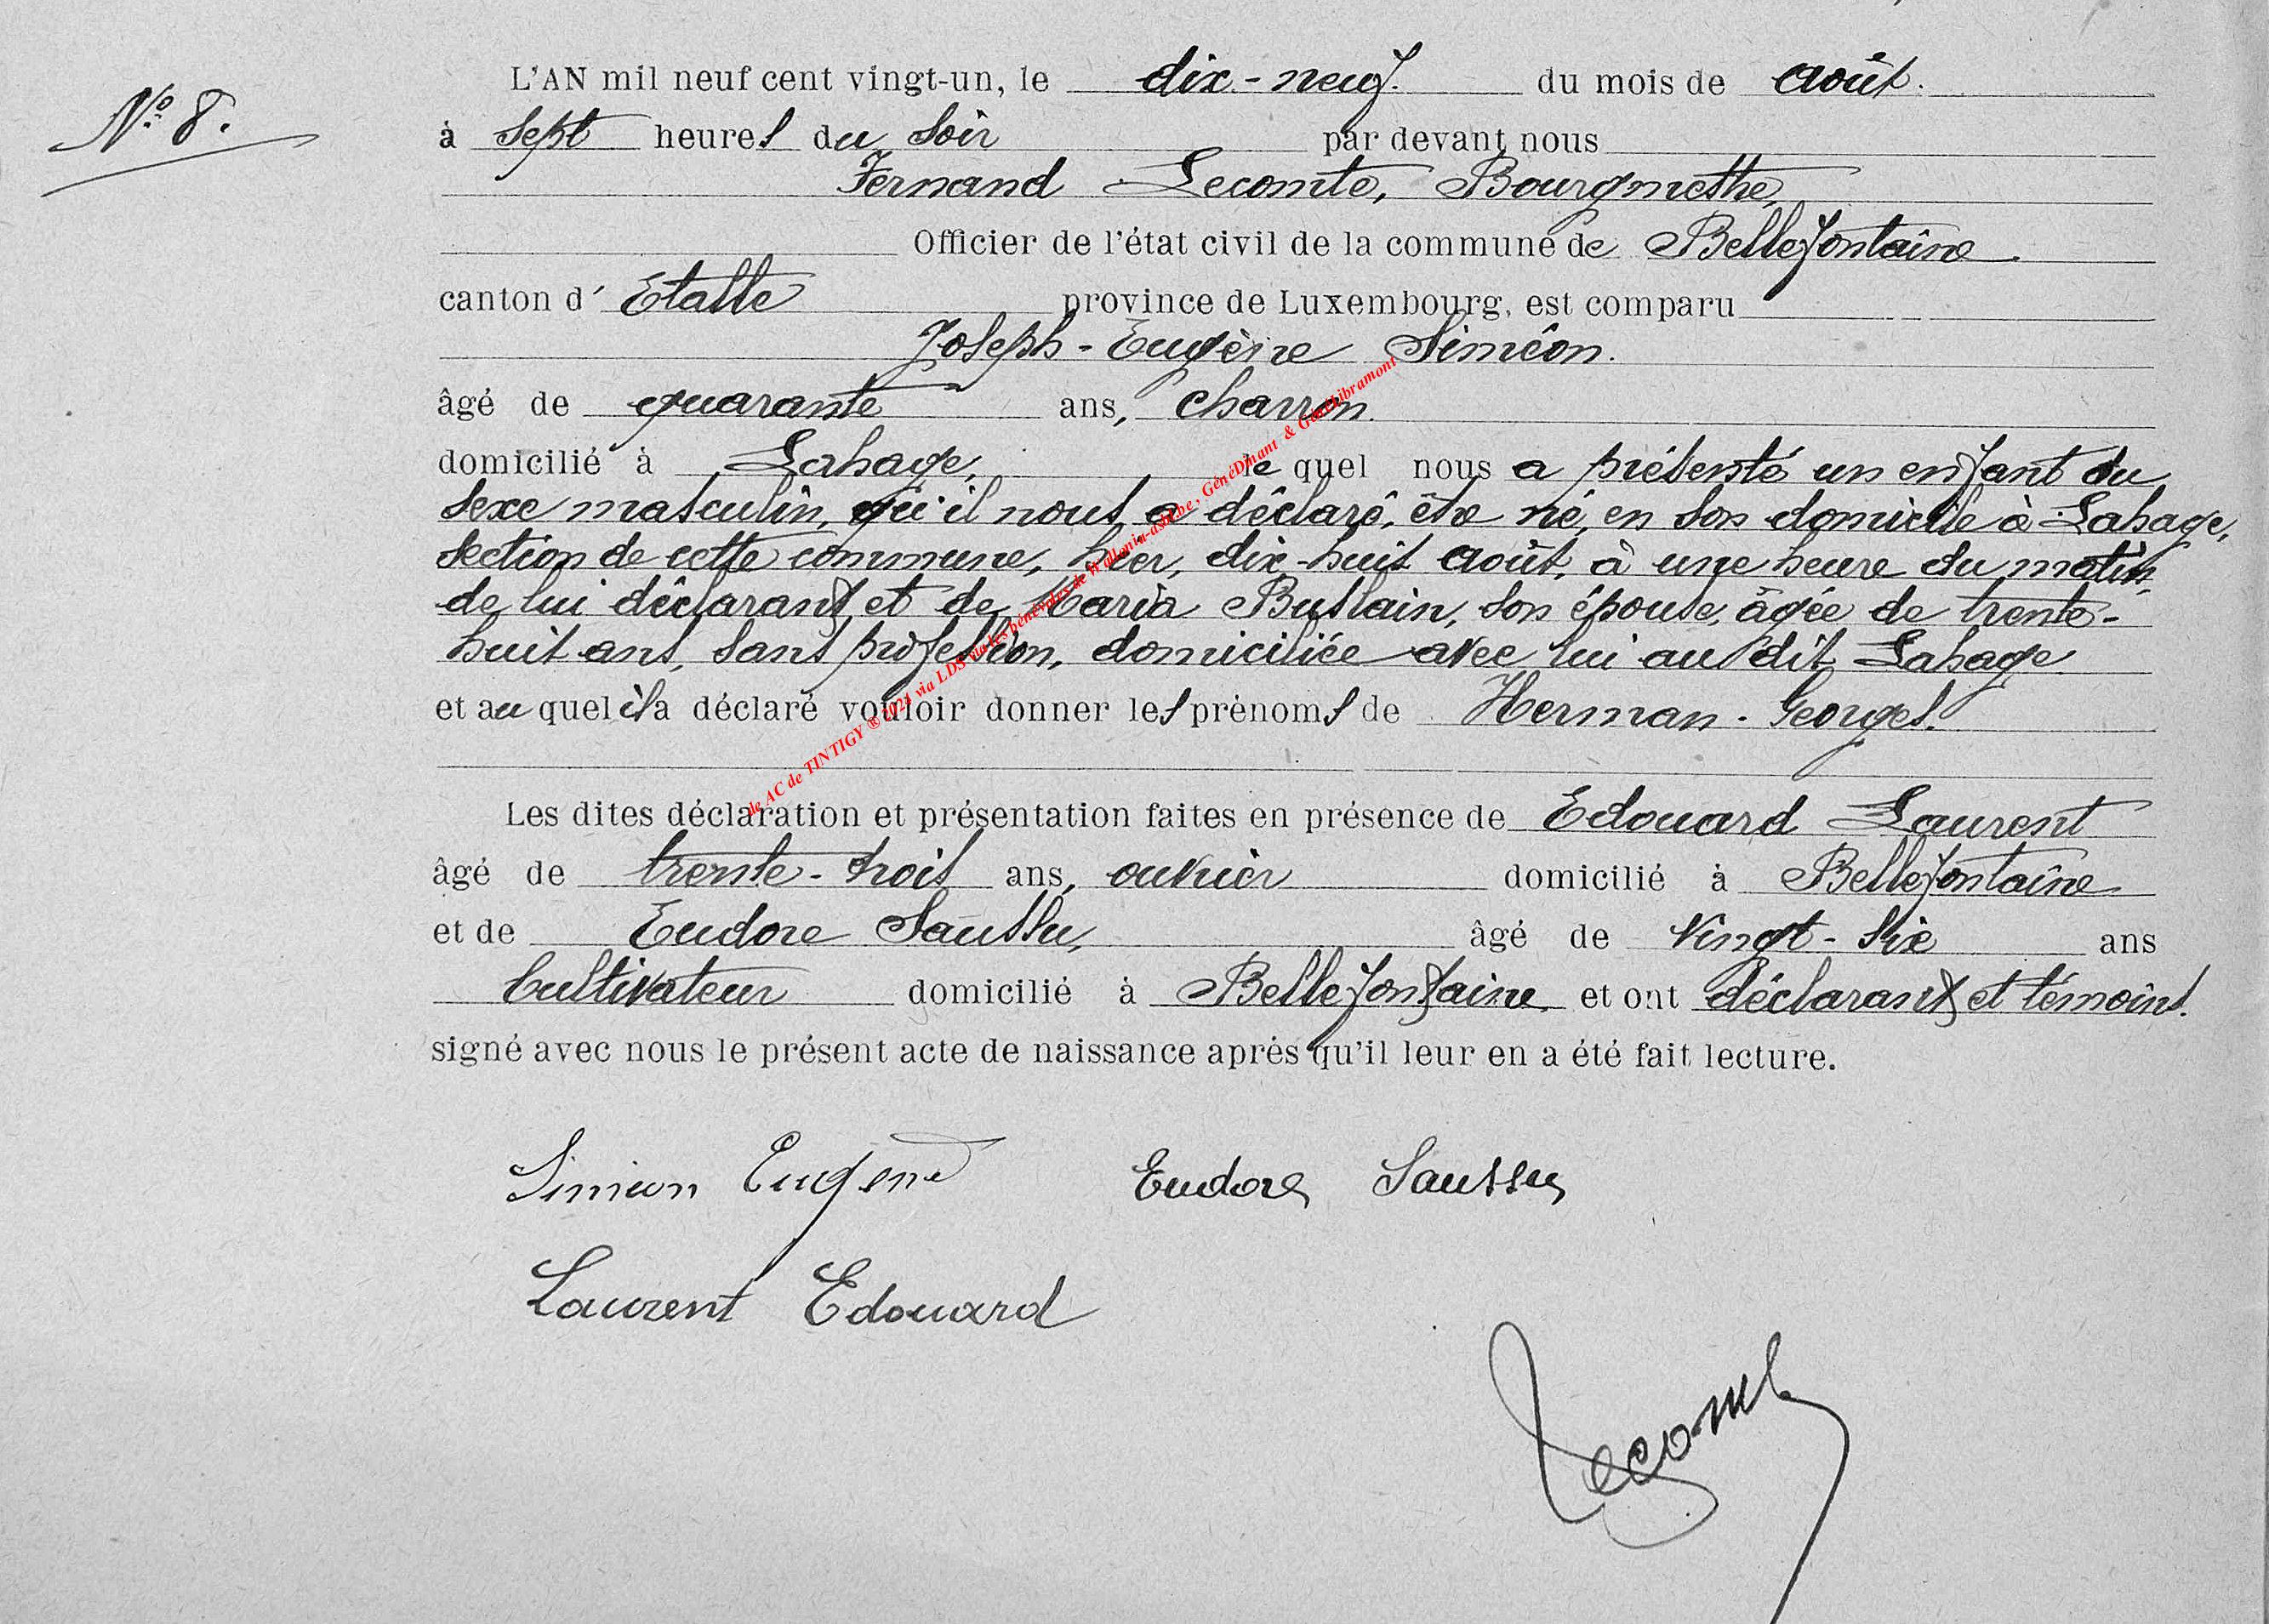 N° 8.
L'AN mil neuf cent vingt-un, le dix-neuf. du mois de août.
à sept heures du soir par devant nous
Fernand Lecomte, Bourgmestre,
Officier de l'état civil de la commune de Bellefontaine
canton d'Etalle province de Luxembourg, est comparu
Joseph-Eugène Siméon.
âgé de quarante ans, charron.
domicilié à Lahage, le quel nous a présenté un enfant du
sexe masculin, qu'il nous a déclaré, être né, en son domicile à Lahage,
section de cette commune, hier, dix-huit août, à une heure du matin,
de lui déclarant et de Maria Buslain, son épouse, âgée de trente-
huit ans, sans profession, domiciliée avec lui au dit Lahage
et au quel il a déclaré vouloir donner les prénoms de Herman-Georges.
Les dites déclaration et présentation faites en présence de Edouard Laurent
âgé de trente-trois ans, ouvrier domicilié à Bellefontaine
et de Eudore Saussu, âgé de vingt-six ans
Cultivateur domicilié à Bellefontaine et ont déclarant et témoins.
signé avec nous le présent acte de naissance après qu'il leur en a été fait lecture.
Siméon Eugène Eudore Saussu
Laurent Edouard
Lecomte
de AC de TINTIGY ® 2021 via LDS via les bénévoles de Wallonia-asbl.be, GénéDinant & GénéLibramont